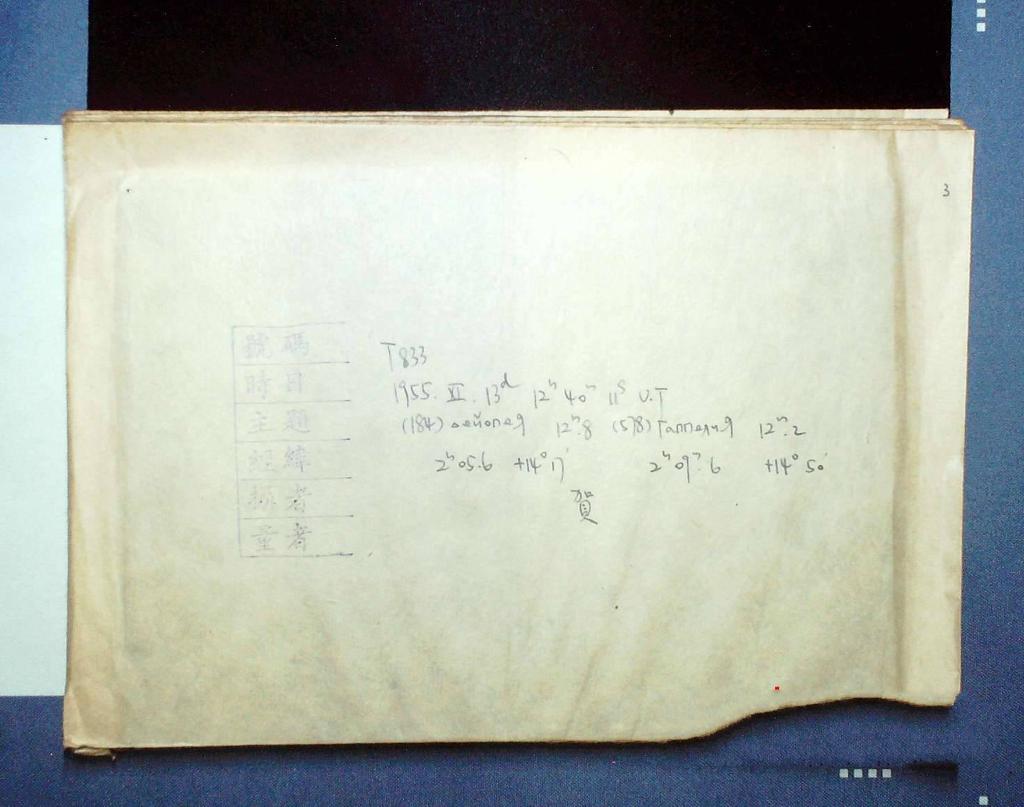 3
號碼 T833
時日 1955. XI. 13ᵈ 12ʰ 40ᵐ 11ˢ U.T
主題 (184) Дейопея 12ᵐ.8 (578) Гаппелия 12ᵐ.2
經緯 2ʰ05.6 +14°17′ 2ʰ09ᵐ.6 +14°50′
攝者 賀
量者